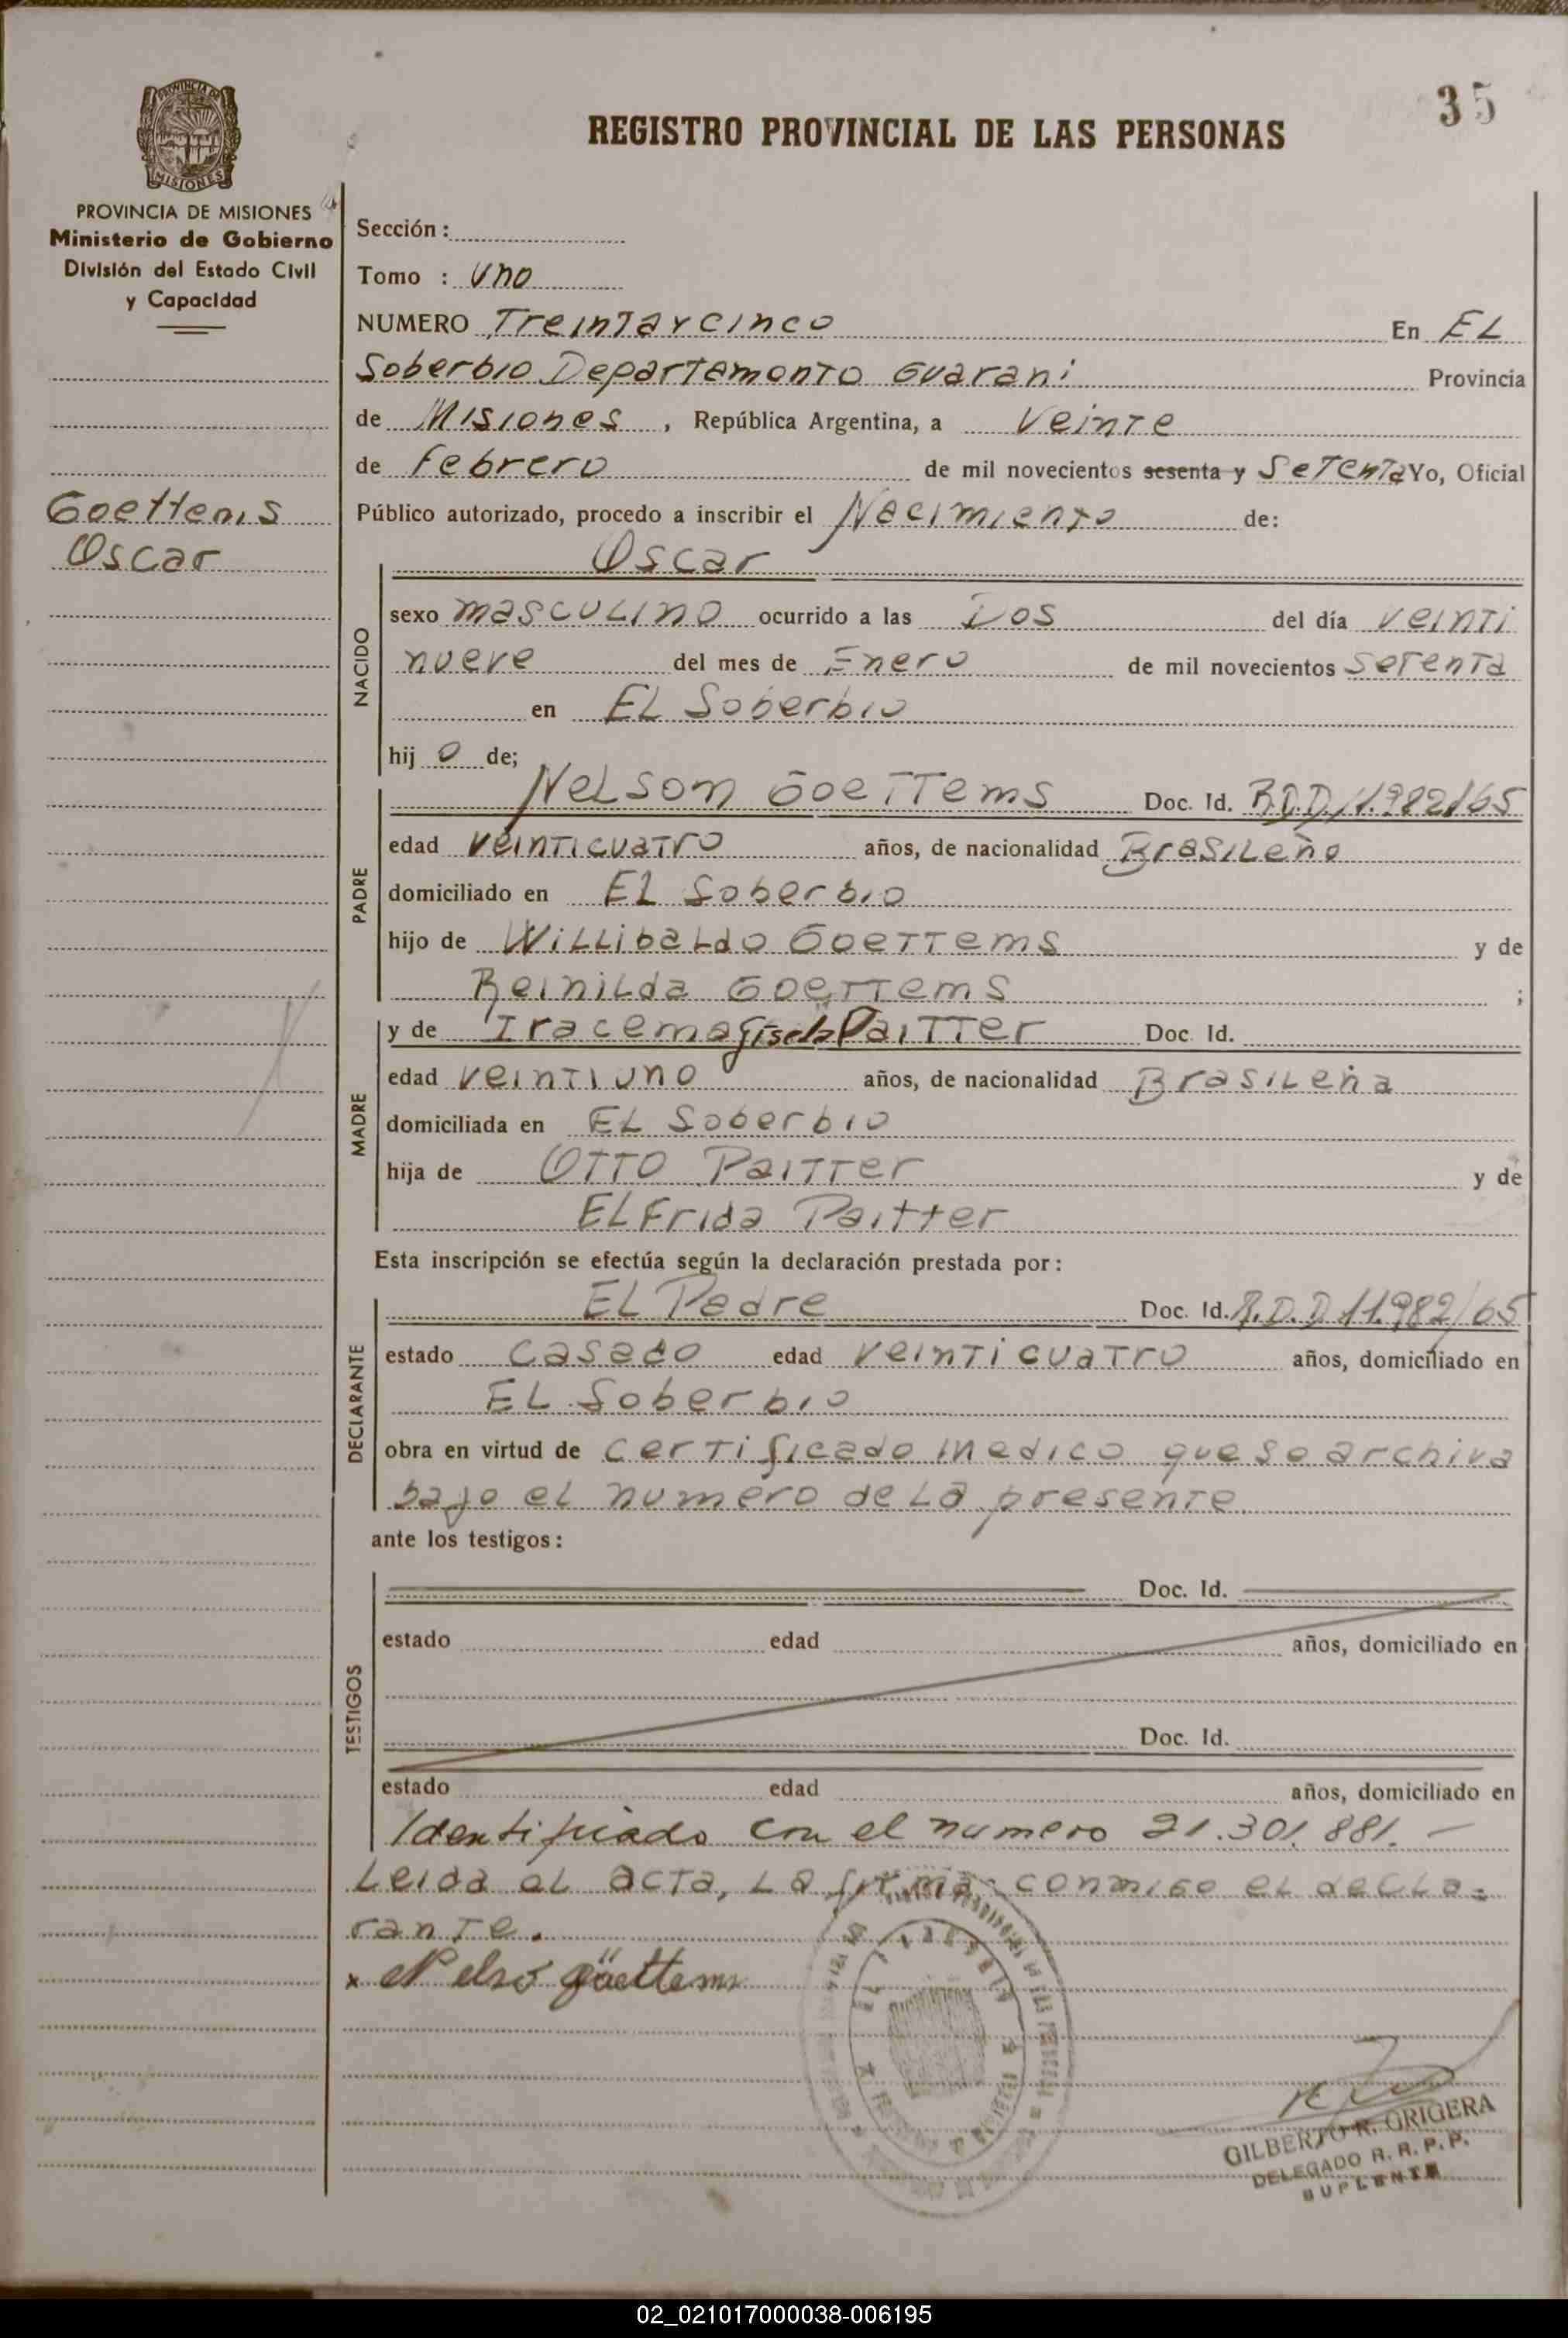 35
REGISTRO PROVINCIAL DE LAS PERSONAS
PROVINCIA DE
MISIONES
PROVINCIA DE MISIONES
Ministerio de Gobierno
División del Estado Civil
y Capacidad
Goettems
Oscar
Sección :
Tomo : Uno
NUMERO Treintaycinco En EL
Soberbio Departamento Guarani Provincia
de Misiones , República Argentina, a Veinte
de Febrero de mil novecientos sesenta y Setenta Yo, Oficial
Público autorizado, procedo a inscribir el Nacimiento de:
Oscar
NACIDO
sexo masculino ocurrido a las Dos del día veinti
nueve del mes de Enero de mil novecientos setenta
en EL Soberbio
hij o de;
PADRE
Nelson Goettems Doc. Id. R.D.D 11.982/65
edad veinticuatro años, de nacionalidad Brasileño
domiciliado en EL Soberbio
hijo de Willibaldo Goettems y de
Reinilda Goettems ;
MADRE
y de Iracema Gisela Paitter Doc. Id.
edad veintiuno años, de nacionalidad Brasileña
domiciliada en EL Soberbio
hija de Otto Paitter y de
Elfrida Paitter
Esta inscripción se efectúa según la declaración prestada por :
DECLARANTE
EL Padre Doc. Id. R.D.D 11.982/65
estado casado edad veinticuatro años, domiciliado en
EL Soberbio
obra en virtud de certificado medico que se archiva
bajo el numero de la presente
ante los testigos :
TESTIGOS
Doc. Id.
estado edad años, domiciliado en
Doc. Id.
estado edad años, domiciliado en
Identificado con el numero 21.301.881.-
Leida el acta, la firma conmigo el decla=
rante.
x Nelso göettems
GILBERTO R. GRIGERA
DELEGADO R. R. P. P.
SUPLENTE
02_021017000038-006195